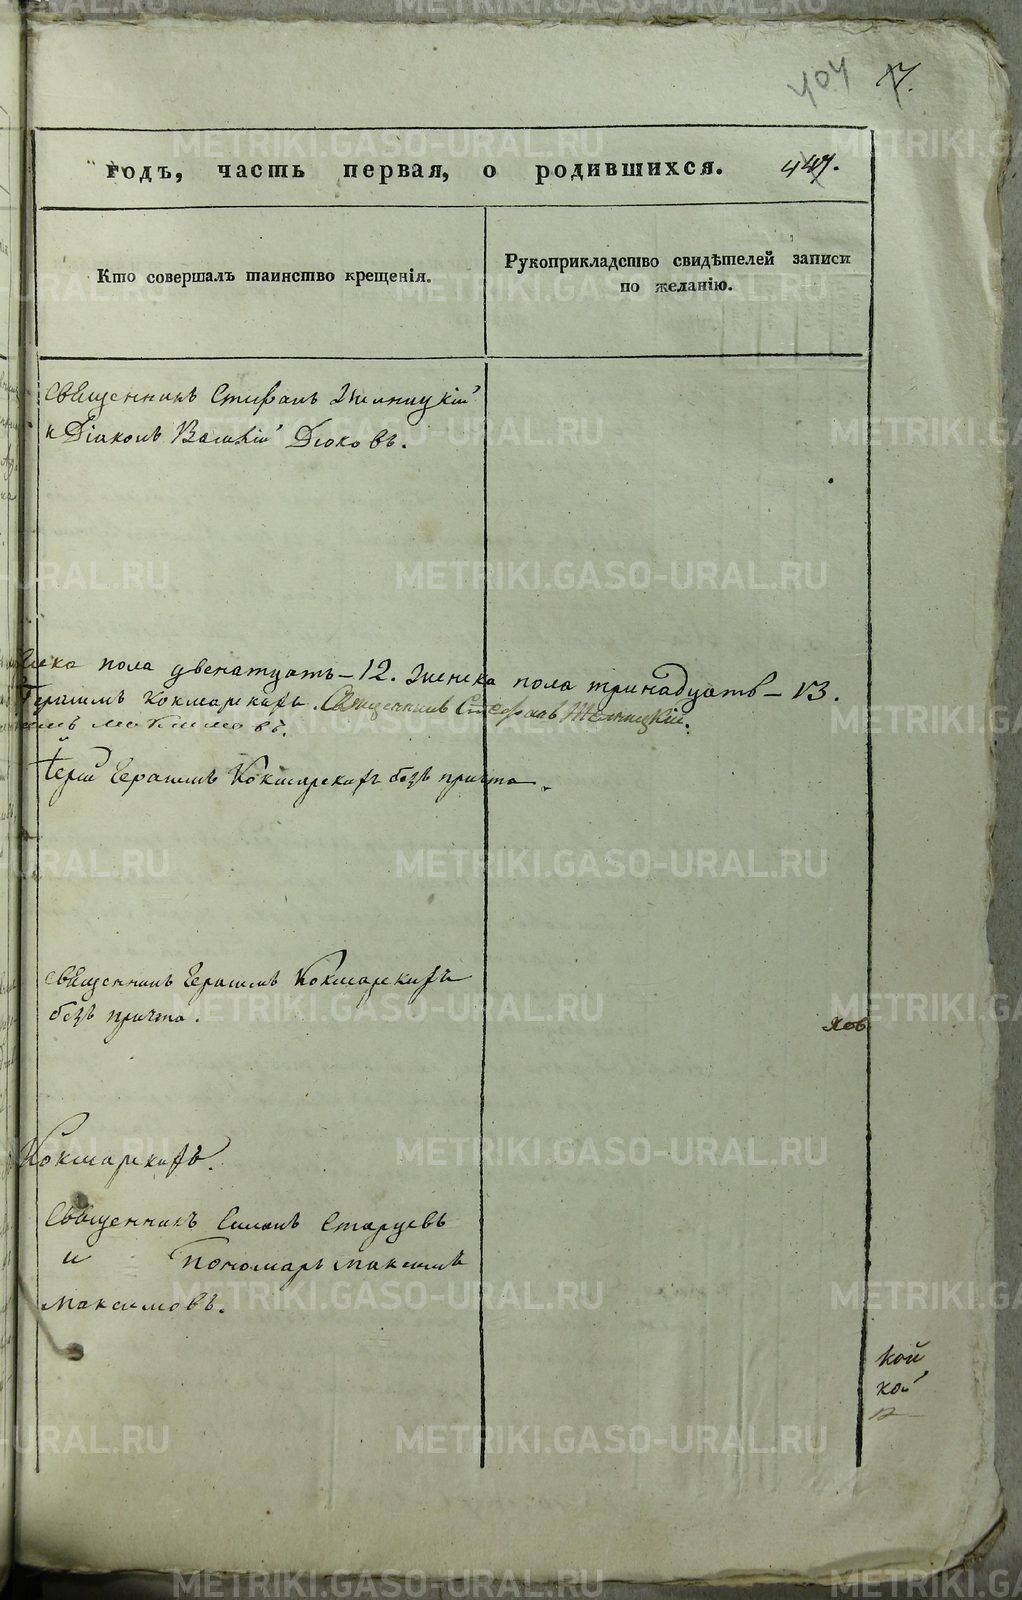 404 17.
годъ, часть первая, о родившихся. 447.
Кто совершалъ таинство крещенія.
Рукоприкладство свидѣтелей записи
по желанію.
священникъ Стефанъ Желницкій
и Діаконъ Василій Дюковъ.
пола двенатцать – 12. женска пола тринадцать – 13.
Герасимъ Кокшарскихъ. Священникъ Стефанъ Желницкій.
Іерей Герасимъ Кокшарскихъ безъ причта.
священникъ Герасимъ Кокшарскихъ
безъ причта.
Кокшарскихъ.
Священникъ Симонъ Старцевъ
и Пономарь Максимъ
Максимовъ.
кой
кой
METRIKI.GASO-URAL.RU